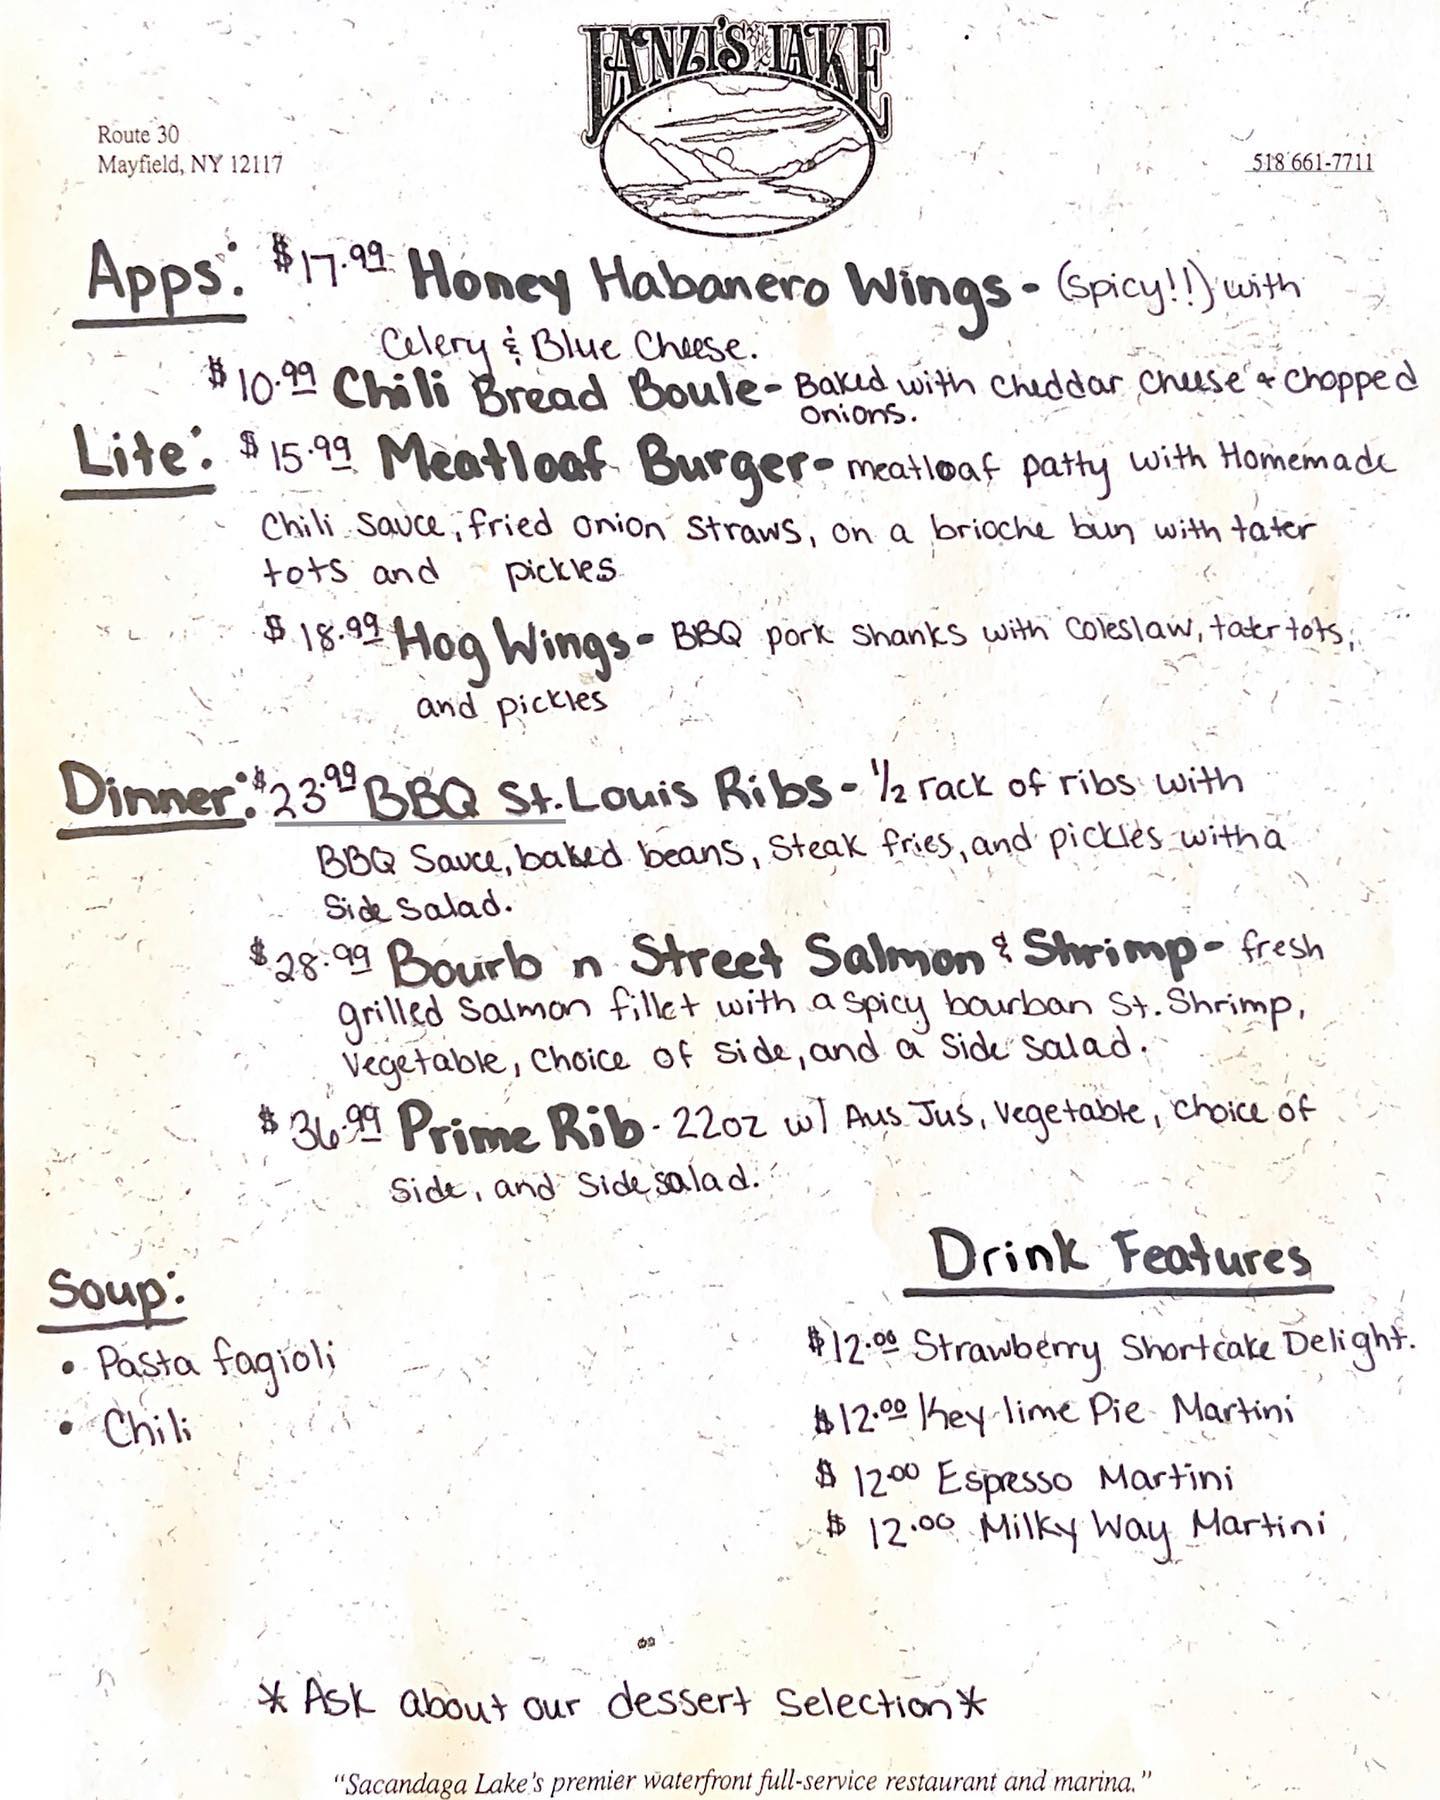 LANZI'S on the LAKE
Route 30
Mayfield, NY 12117
518 661-7711
Apps: $17.99 Honey Habanero Wings - (Spicy!!) with
Celery & Blue Cheese.
$10.99 Chili Bread Boule - Baked with cheddar cheese + chopped
onions.
Lite: $15.99 Meatloaf Burger - meatloaf patty with Homemade
Chili Sauce, fried onion straws, on a brioche bun with tater
tots and pickles
$18.99 Hog Wings - BBQ pork shanks with coleslaw, tater tots,
and pickles
Dinner: $23.99 BBQ St. Louis Ribs - 1/2 rack of ribs with
BBQ Sauce, baked beans, Steak fries, and pickles with a
Side Salad.
$28.99 Bourb n Street Salmon & Shrimp - fresh
grilled Salmon fillet with a spicy bourban St. Shrimp,
Vegetable, choice of side, and a side salad.
$36.99 Prime Rib - 22oz w/ Aus Jus, vegetable, choice of
Side, and Side salad.
Drink Features
Soup:
$12.00 Strawberry Shortcake Delight.
• Pasta fagioli
$12.00 Key lime Pie Martini
• Chili
$12.00 Espresso Martini
$12.00 Milky Way Martini
* Ask about our dessert selection *
"Sacandaga Lake's premier waterfront full-service restaurant and marina."